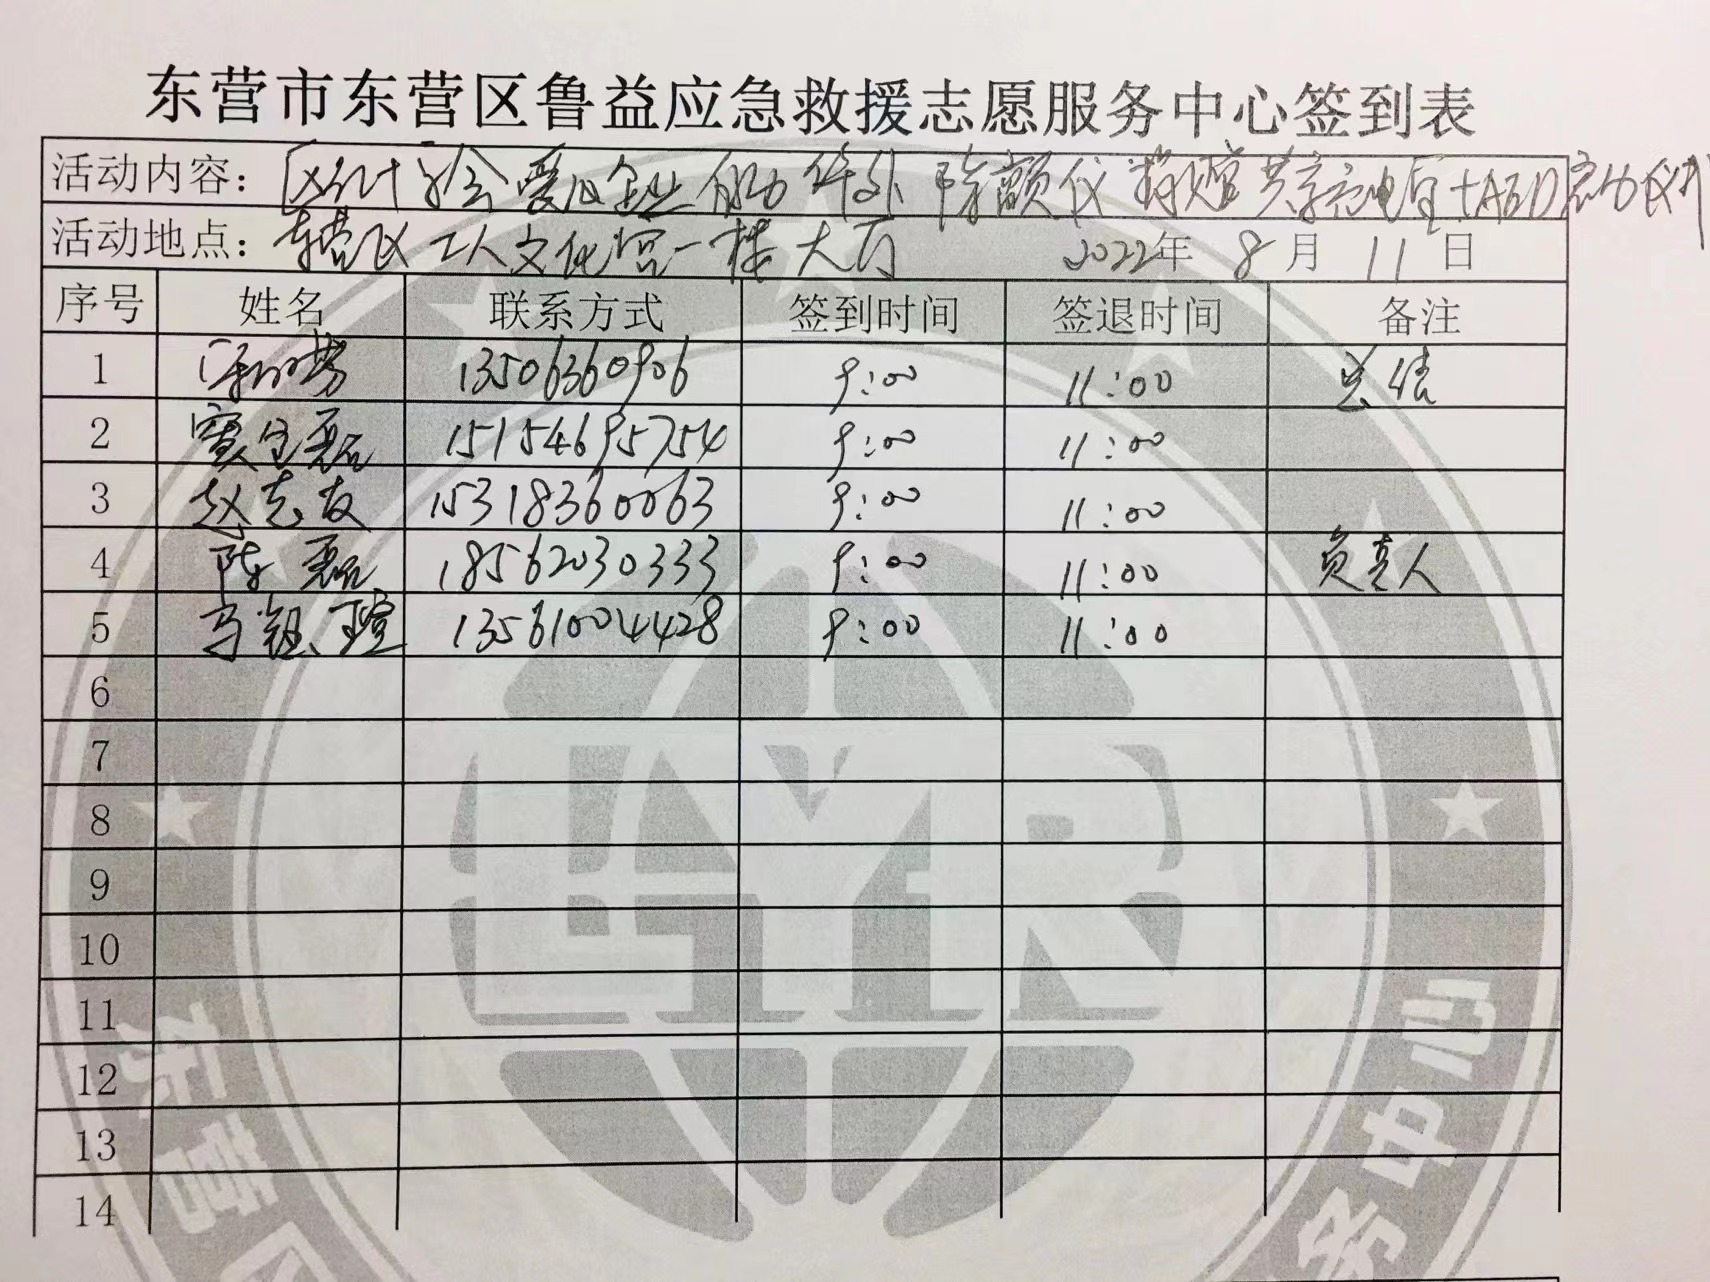 东营市东营区鲁益应急救援志愿服务中心签到表
活动内容： 区红十字会爱心企业自动体外除颤仪捐赠 共享充电宝+AED启动仪式
活动地点：东营区工人文化宫一楼大厅 2022年 8 月 11 日
序号 姓名 联系方式 签到时间 签退时间 备注
1 13506360906 9:00 11:00 总结
2 窦宝磊 15154695754 9:00 11:00
3 赵志友 15318360063 9:00 11:00
4 陈磊 18562030333 9:00 11:00 负责人
5 马 瑄 13561004428 9:00 11:00
6
7
8
9
10
11
12
13
14
LYR
东营区
务中心